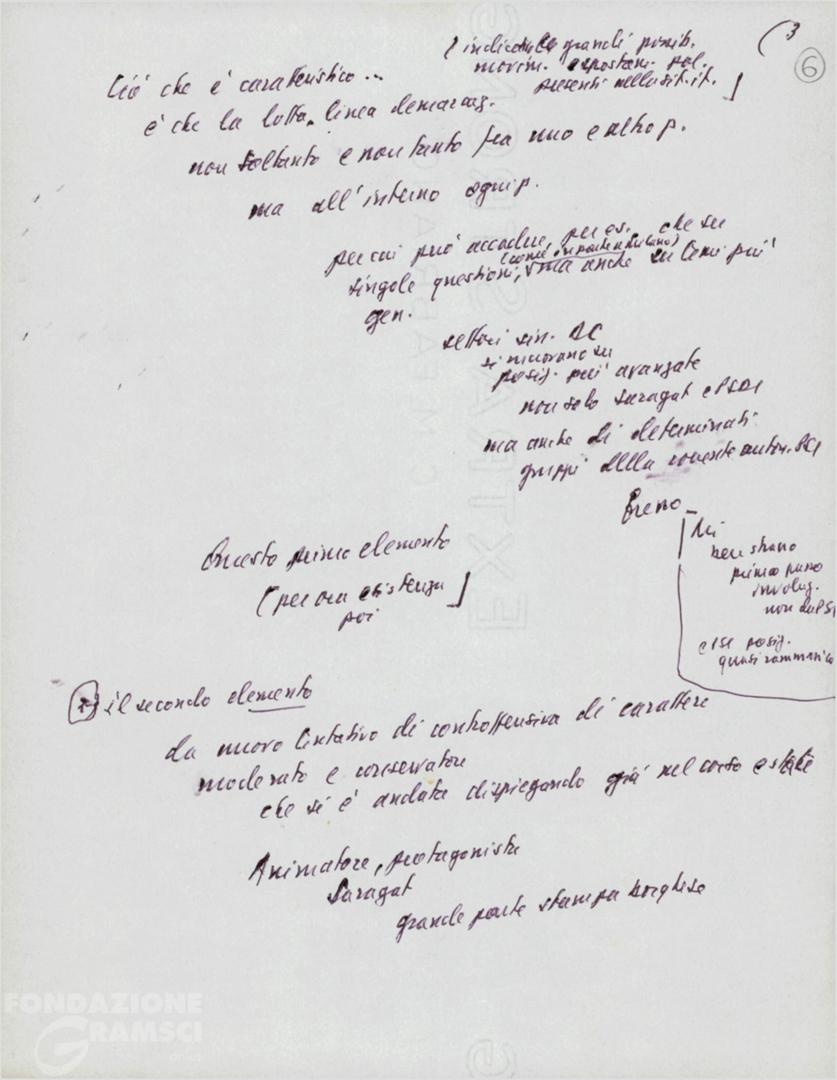 (3
6
[indica le grandi possib.
movim. e spostam. pol.
presenti nella sit. it.]
Ciò che è caratteristico...
è che la lotta, linea demarcaz.
non soltanto e non tanto fra uno e altro p.
ma all'interno ogni p.
per cui può accadere, per es. che su
singole questioni, ma anche su temi più
gen.
settori sin. DC
si muovano su
posiz. più avanzate
non solo Saragat e PSDI
ma anche di determinati
gruppi della corrente auton. PSI
Breno -
ben strano
primo passo
involuz.
non dal PSI
e se posiz.
quasi rammarico
Questo primo elemento
(per ora esistenza]
poi
2) il secondo elemento
da nuovo tentativo di controffensiva di carattere
moderato e conservatore
che si è andata dispiegando già nel corso estate
Animatore, protagonista
Saragat
grande parte stampa borghese
FONDAZIONE
GRAMSCI
onlus